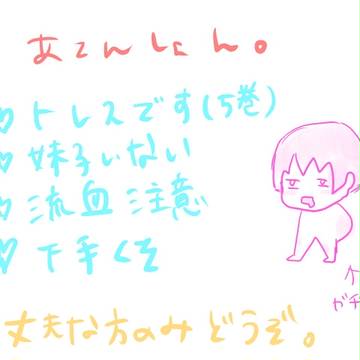 あてんしょん。
♡トレスです(5巻)
♡妹子いない
♡流血注意
♡下手くそ
↑
ガチ
丈夫な方のみどうぞ。